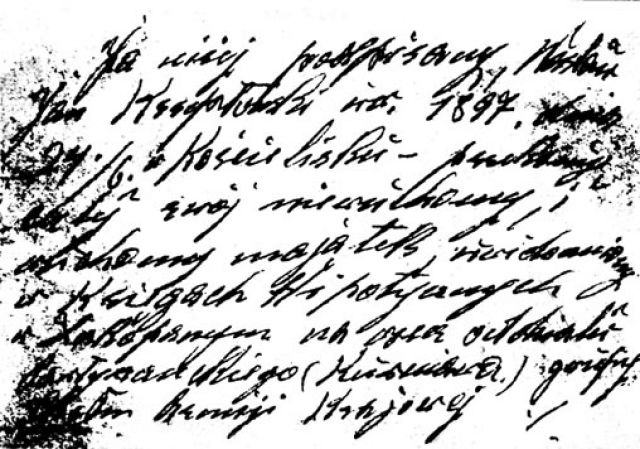 Ja niżej podpisany, Wacław
Jan Krzeptowski ur. 1897, dnia
24./6. w Kościelisku - przekazuję
cały swój nieruchomy, i
ruchomy majątek, uwidoczniony
w Księgach Hipotycznych
w Zakopanym na rzecz oddziału
Partyzanckiego (Kurniawa) grupy
Armji Krajowej !